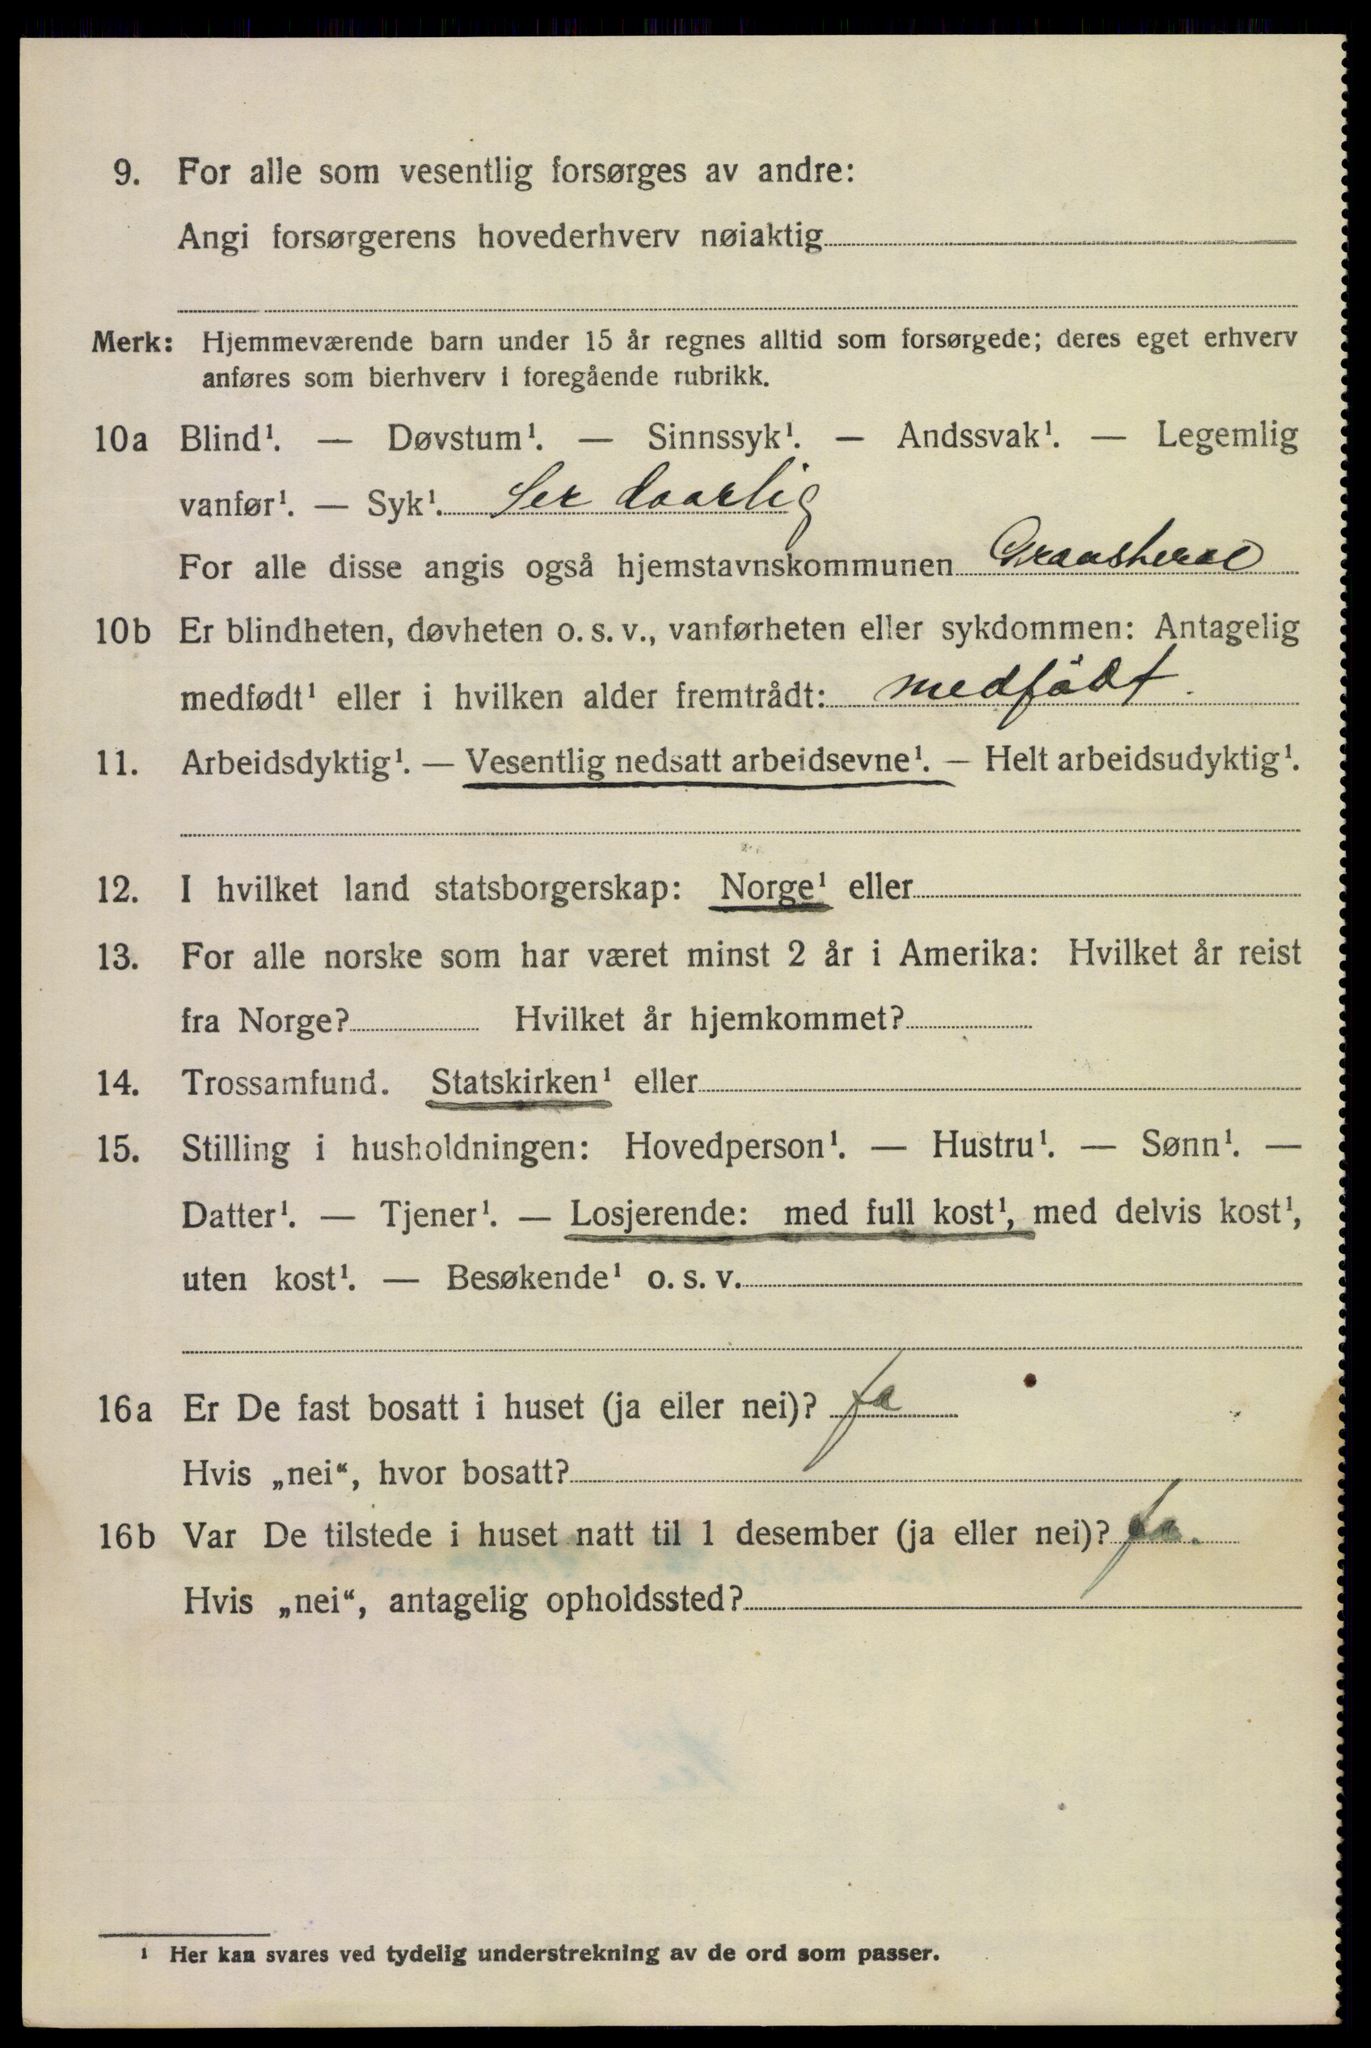 9. For alle som vesentlig forsørges av andre:
Angi forsørgerens hovederhverv nøiaktig
Merk: Hjemmeværende barn under 15 år regnes alltid som forsørgede; deres eget erhverv
anføres som bierhverv i foregående rubrikk.
10a Blind¹. — Døvstum¹. — Sinnssyk¹. — Andssvak¹. — Legemlig
vanfør¹. — Syk¹. Ser daarlig
For alle disse angis også hjemstavnskommunen Gransherad
10b Er blindheten, døvheten o. s. v., vanførheten eller sykdommen: Antagelig
medfødt¹ eller i hvilken alder fremtrådt: medfödt.
11. Arbeidsdyktig¹. — Vesentlig nedsatt arbeidsevne¹. — Helt arbeidsudyktig¹.
12. I hvilket land statsborgerskap: Norge¹ eller
13. For alle norske som har været minst 2 år i Amerika: Hvilket år reist
fra Norge? Hvilket år hjemkommet?
14. Trossamfund. Statskirken¹ eller
15. Stilling i husholdningen: Hovedperson¹. — Hustru¹. — Sønn¹. —
Datter¹. — Tjener¹. — Losjerende: med full kost¹, med delvis kost¹,
uten kost¹. — Besøkende¹ o. s. v.
16a Er De fast bosatt i huset (ja eller nei)? ja
Hvis „nei“, hvor bosatt?
16b Var De tilstede i huset natt til 1 desember (ja eller nei)? ja.
Hvis „nei“, antagelig opholdssted?
¹ Her kan svares ved tydelig understrekning av de ord som passer.